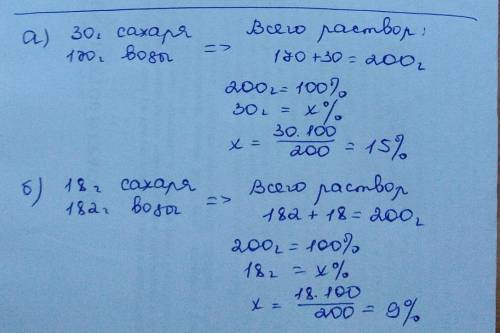 а) 30г сахаря => Всего раствор:
170г воды 170+30=200г
200г=100%
30г = x%
x = 30.100/200 = 15%
б) 18г сахаря => Всего раствор
182г воды 182+18=200г
200г=100%
18г = x%
x = 18.100/200 = 9%